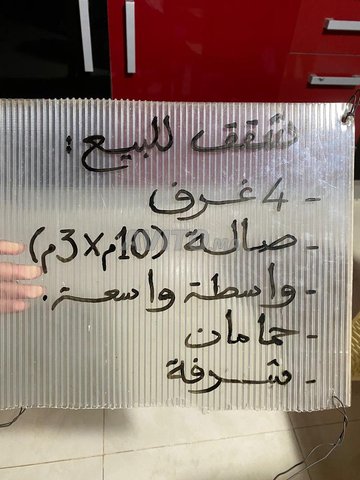 شقق للبيع :
- 4 غرف
- صالة (10م×3م)
- واسطة واسعة.
- حمامان
- شرفة